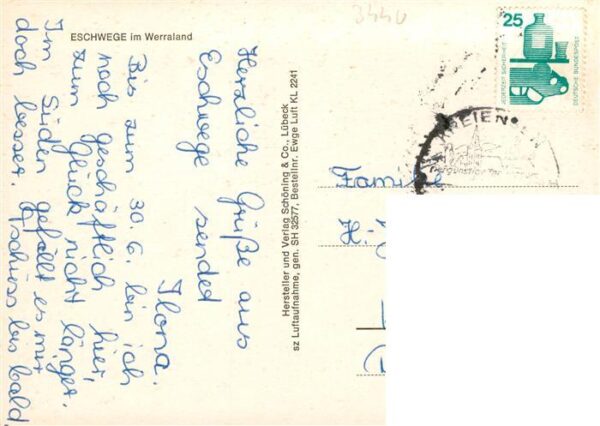 3440
ESCHWEGE im Werraland
Herzliche Grüße aus
Eschwege sendet
Ilona.
Bis zum 30. 6. bin ich
noch geschäftlich hier,
zum Glück nicht länger.
Im Süden gefällt es mir
doch besser. Tschüss bis bald.
Hersteller und Verlag Schöning & Co., Lübeck
sz Luftaufnahme, gen. SH 32577, Bestellnr. Ewge Luft KL 2241
25
JEDERZEIT SICHERHEIT
DEUTSCHE BUNDESPOST
Familie
H.